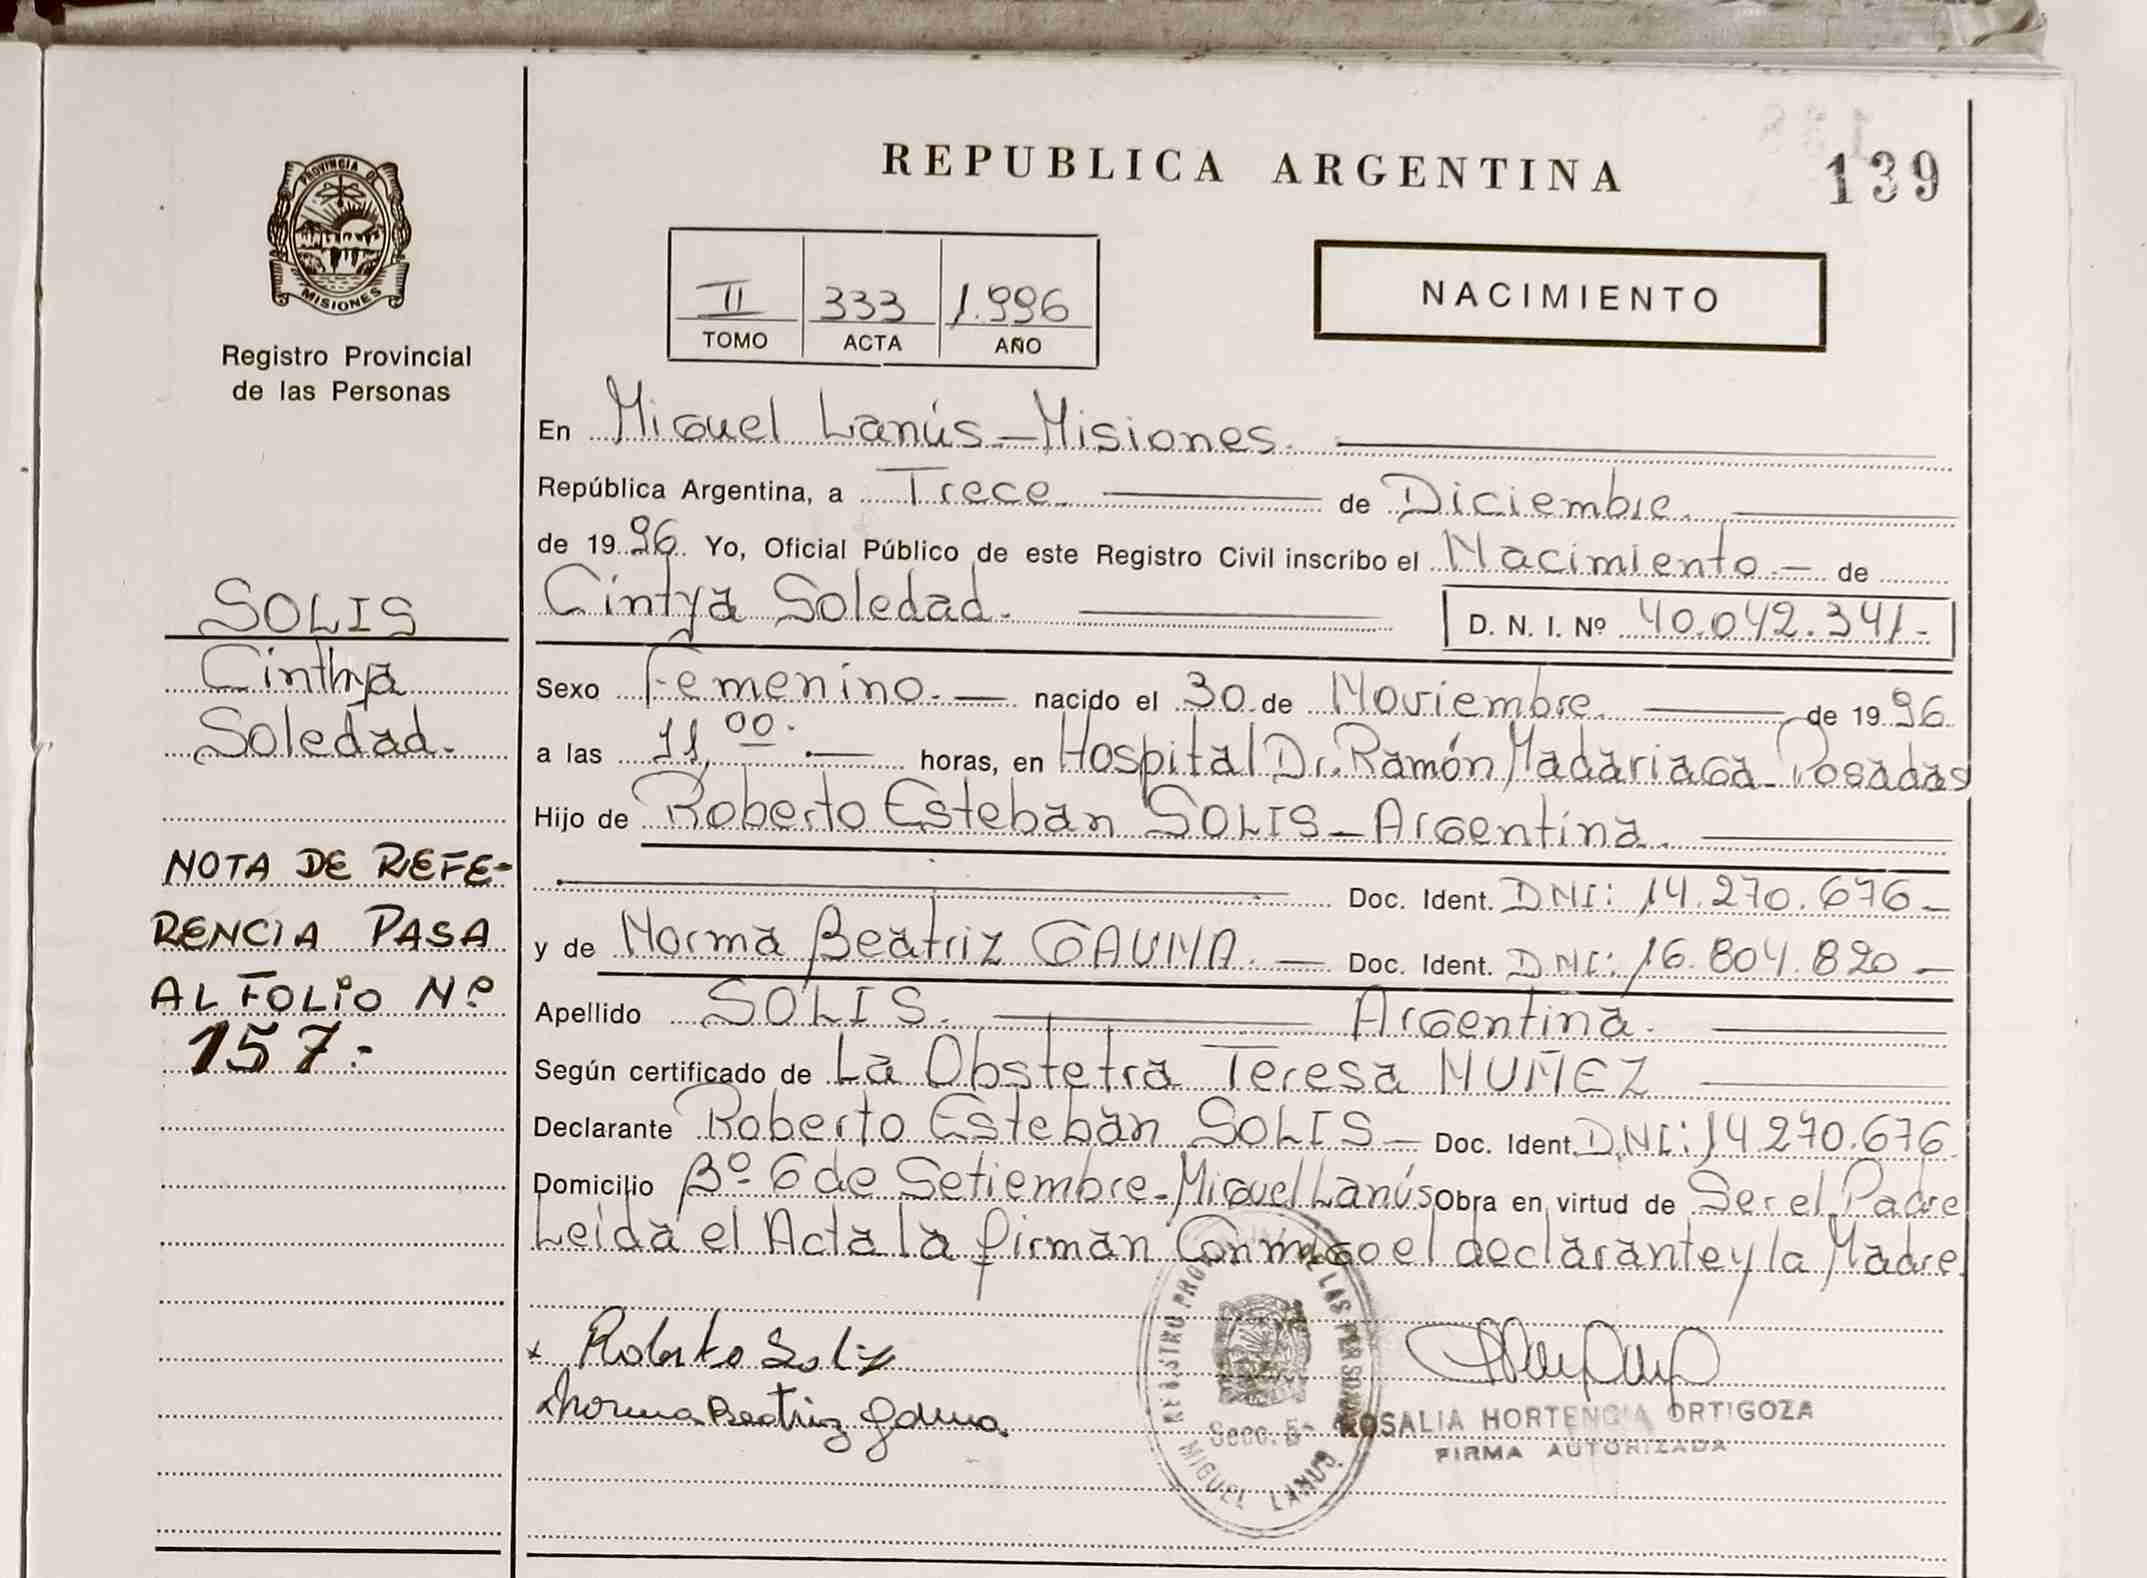 PROVINCIA DE
MISIONES
Registro Provincial
de las Personas
SOLIS
Cinthya
Soledad.
NOTA DE REFE-
RENCIA PASA
AL FOLIO Nº
157.-
REPUBLICA ARGENTINA
139
II 333 1.996
TOMO ACTA AÑO
NACIMIENTO
En Miguel Lanús - Misiones.
República Argentina, a Trece. de Diciembre.
de 1996. Yo, Oficial Público de este Registro Civil inscribo el Nacimiento.- de
Cintya Soledad. D. N. I. Nº 40.042.341.-
Sexo Femenino. - nacido el 30 de Noviembre. de 1996
a las 11,00.- horas, en Hospital Dr. Ramón Madariaga - Posadas
Hijo de Roberto Esteban SOLIS - Argentina.
Doc. Ident. DNI: 14.270.676 -
y de Norma Beatriz GAUNA. - Doc. Ident. DNI: 16.804.820 -
Apellido SOLIS. Argentina.
Según certificado de La Obstetra Teresa NUÑEZ
Declarante Roberto Esteban SOLIS - Doc. Ident. DNI: 14.270.676
Domicilio Bº 6 de Setiembre - Miguel Lanús Obra en virtud de Ser el Padre
Leida el Acta la firman Conmigo el declarante y la Madre.
x Roberto Solis
Norma Beatriz Gauna.
REGISTRO PRO LAS PERSONAS
Secc. 5ª
MIGUEL LANUS
ROSALIA HORTENCIA ORTIGOZA
FIRMA AUTORIZADA